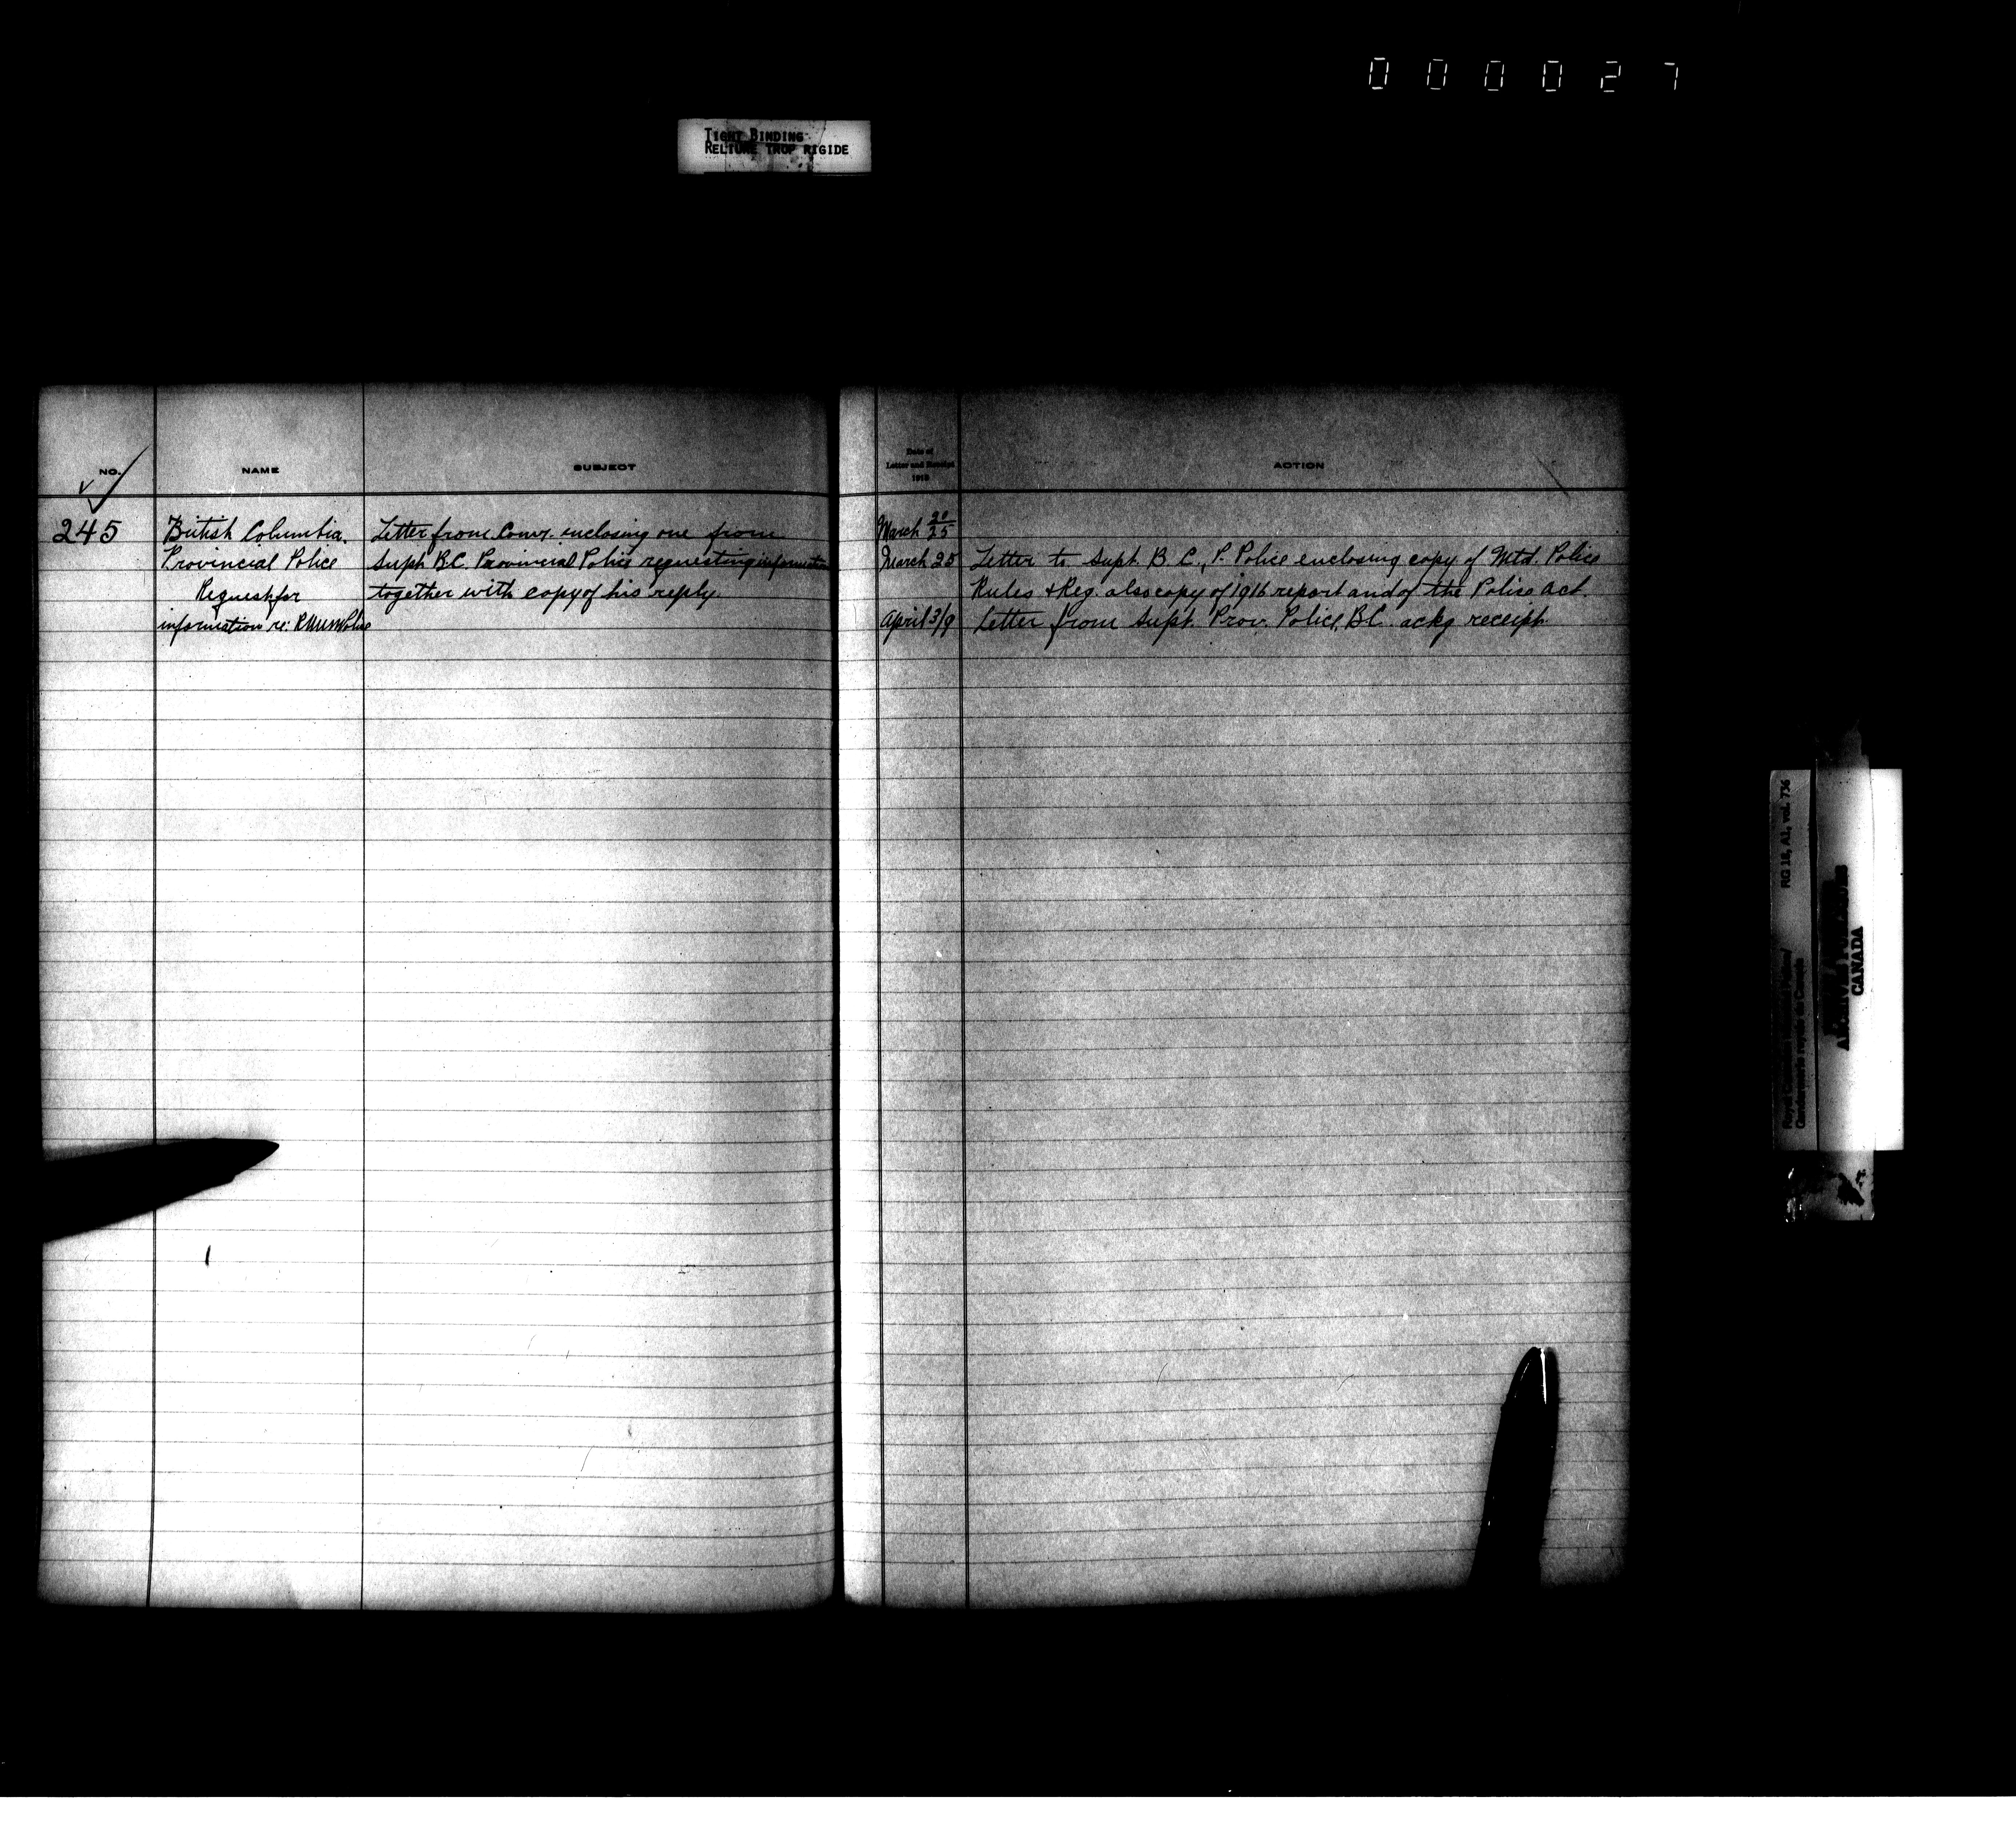 000027
TIGHT BINDING
RELIURE TROP RIGIDE
NO. NAME SUBJECT
245 British Columbia. Letter from Comr. enclosing one from
Provincial Police Supt. B.C. Provincial Police requesting information
Request for together with copy of his reply.
information re: R.N.W.M. Police
Date of
Letter and Receipt
1918
ACTION
March 20/25
March 25 Letter to Supt. B.C., P. Police enclosing copy of Mtd. Police
Rules & Reg. also copy of 1916 report and of the Police Act.
April 3/9 Letter from Supt. Prov. Police, B.C. ackg receipt.
RG 18, A1, vol. 736
Royal Canadian Mounted Police/
Gendarmerie royale du Canada
CANADA